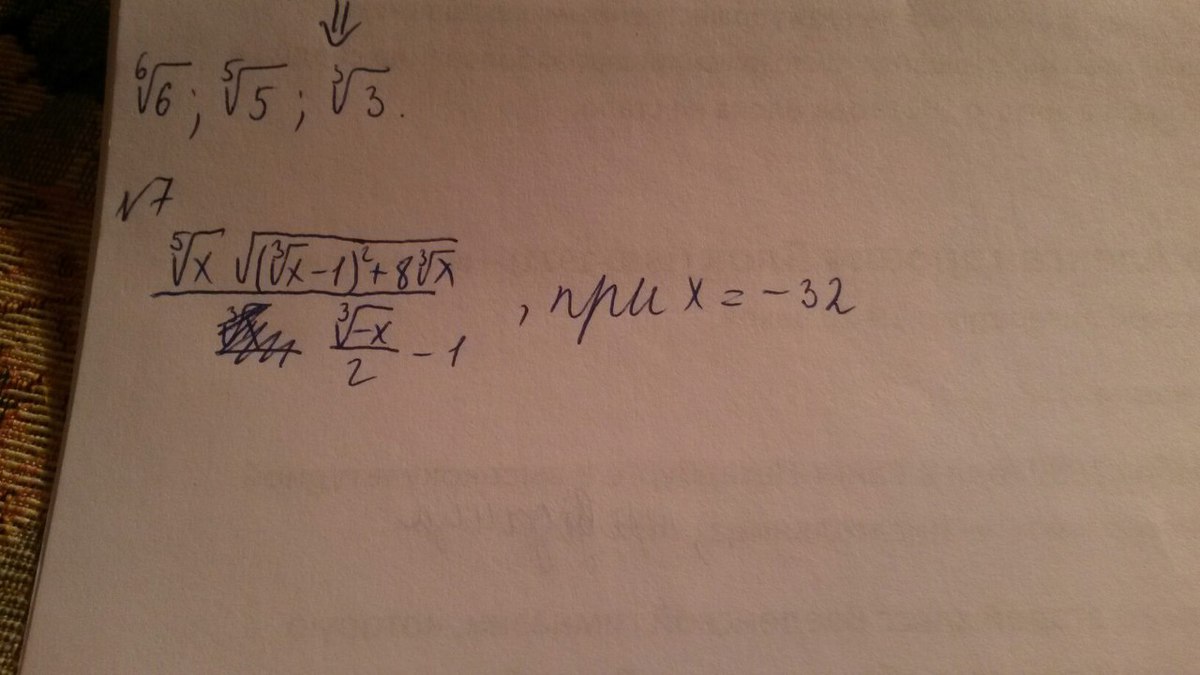 ⇓
⁶√6; ⁵√5; ³√3.
№7
⁵√x √((³√x-1)²+8³√x)
³√-x/2 - 1
, при x = -32